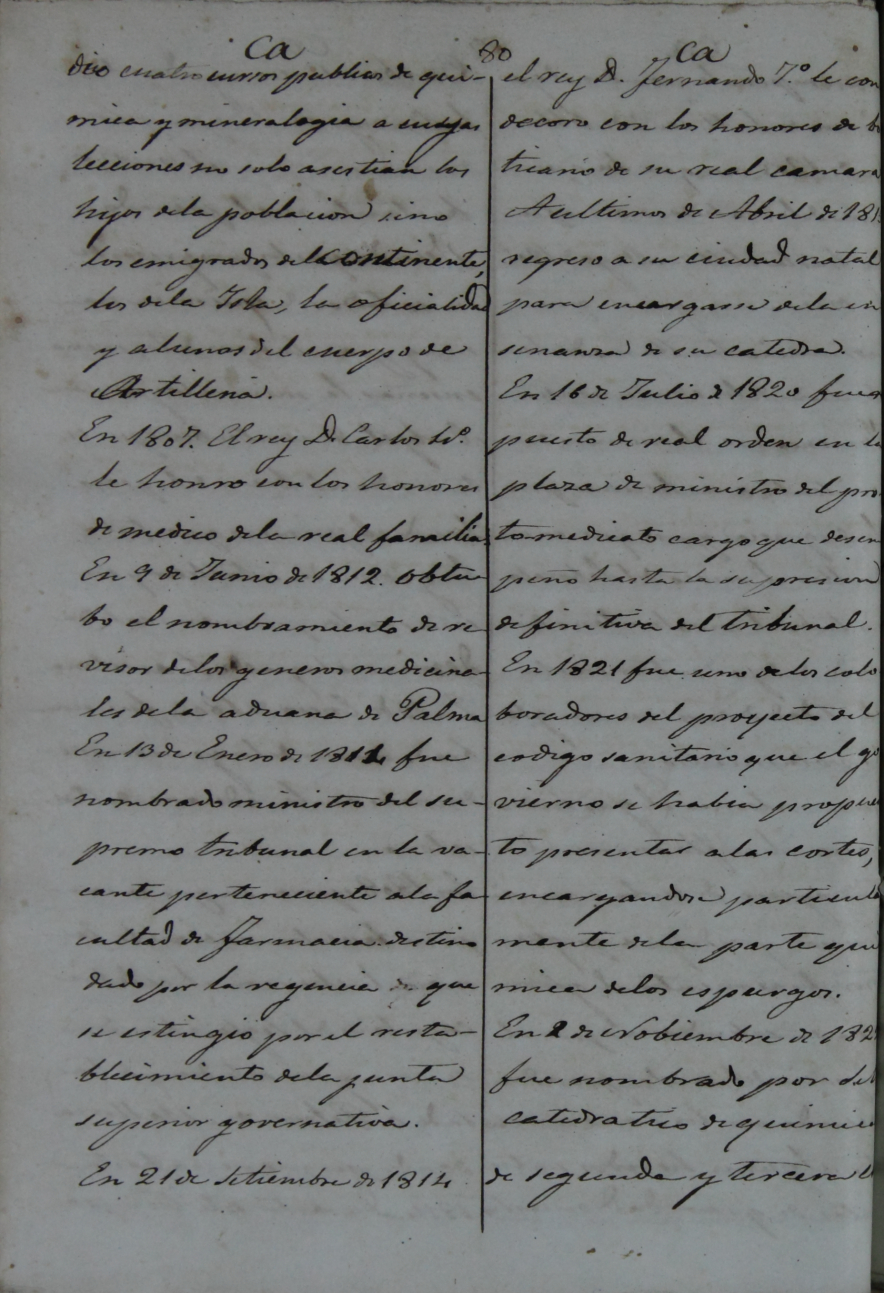 Ca 80 Ca
dio cuatro cursos publicos de qui-
mica y mineralogia a cuyas
lecciones no solo asestian los
hijos dela poblacion sino
los emigrados del continente,
los dela Isla, la oficialidad
y alunos del cuerpo de
Artilleria.
En 1807. El rey D. Carlos 4º.
le honro con los honores
de medico dela real familia.
En 9 de Junio de 1812. obtu-
bo el nombramiento de re-
visor delos generos medicina-
les dela aduana de Palma
En 13 de Enero de 1814 fue
nombrado ministro del su-
premo tribunal en la va-
cante perteneciente ala fa-
cultad de farmacia
dado por la regencia que
se estingio por el resta-
blecimiento dela junta
superior governativa.
En 21 de Setiembre de 1814
el rey D. Fernando 7.º le con
decoro con los honores de bo
ticario de su real camara
A ultimos de Abril de 181
regreso a su ciudad natal
para encargarse dela en
senanza de su catedra.
En 16 de Julio de 1820 fue
puesto de real orden en la
plaza de ministro del pro
to-medicato cargo que desen
peño hasta la supresion
definitiva del tribunal.
En 1821 fue uno delos cola
boradores del proyecto del
codigo sanitario que el go
vierno se habia propues
to presentar alas cortes,
encargandose particula
mente dela parte qui
mica delos espurgos.
En 2 de Nobiembre de 182
fue nombrado por
catedratico de quimica
de segunda y tercera